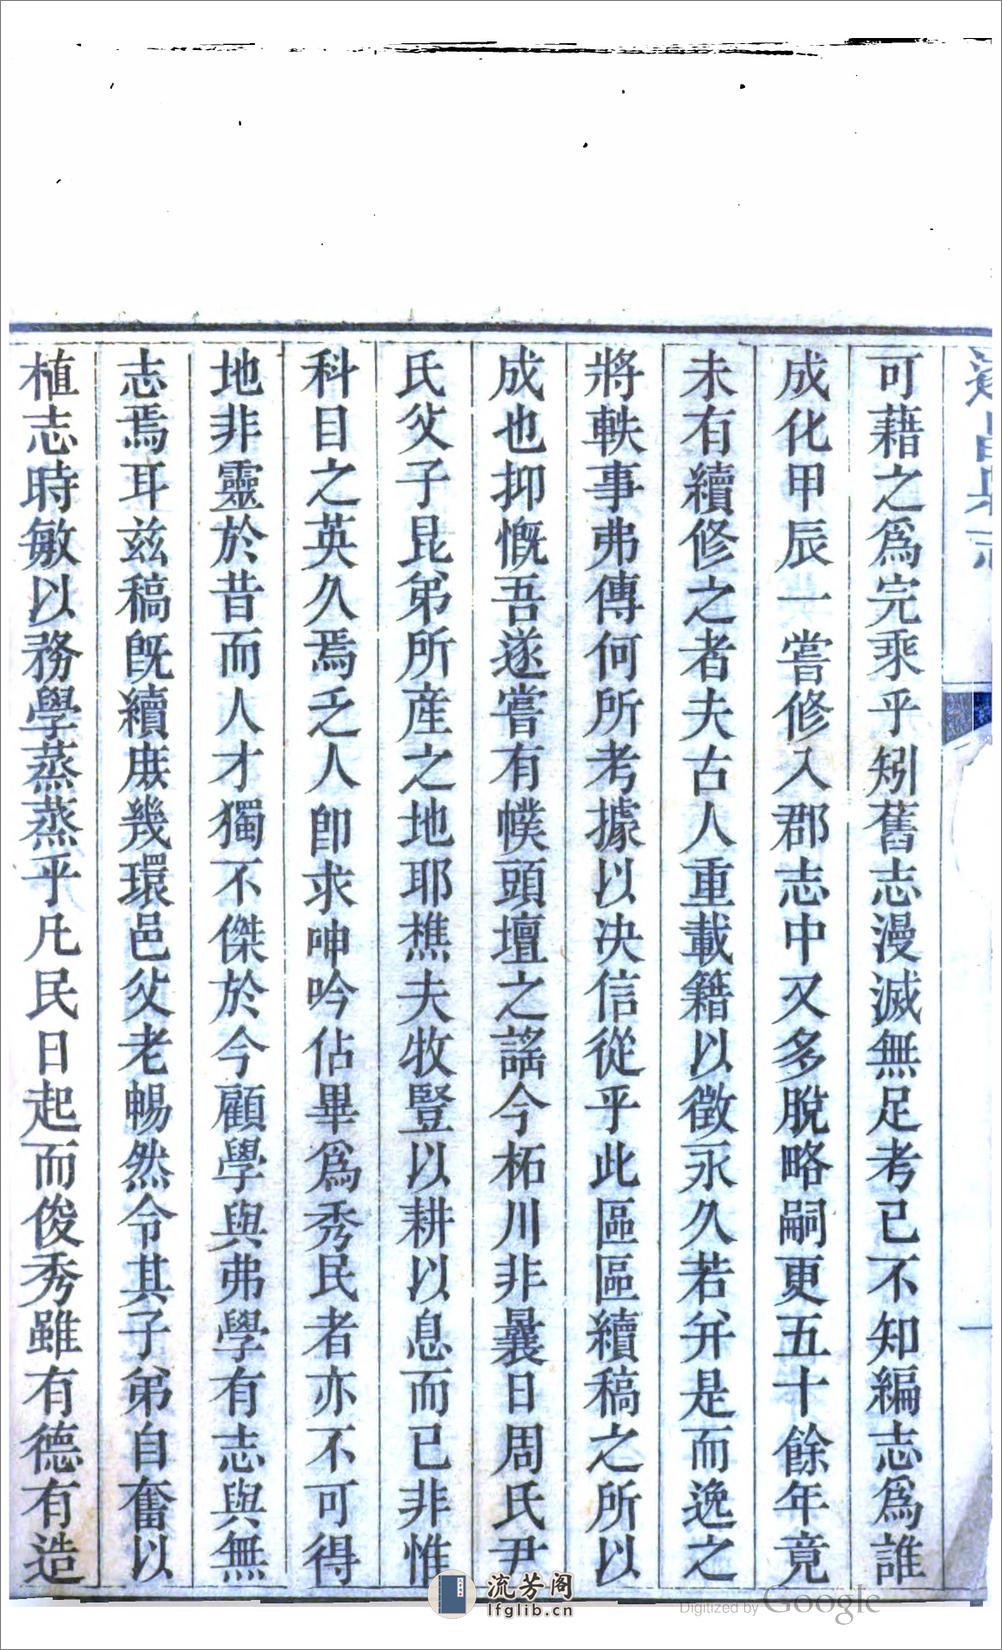 遂昌縣志
一
可藉之爲完乘乎矧舊志漫滅無足考已不知編志爲誰
成化甲辰一嘗修入郡志中又多脫略嗣更五十餘年竟
未有續修之者夫古人重載籍以徵永久若并是而逸之
將軼事弗傳何所考據以决信從乎此區區續稿之所以
成也抑慨吾遂嘗有幞頭壇之謠今柘川非曩日周氏尹
氏父子昆弟所産之地耶樵夫牧豎以耕以息而已非惟
科目之英久焉乏人卽求呻吟佔畢爲秀民者亦不可得
地非靈於昔而人才獨不傑於今顧學與弗學有志與無
志焉耳兹稿旣續庻幾環邑父老暢然令其子弟自奮以
植志時敏以務學蒸蒸乎凡民日起而俊秀雖有德有造
流芳阁
lfglib.cn
Digitized by Google